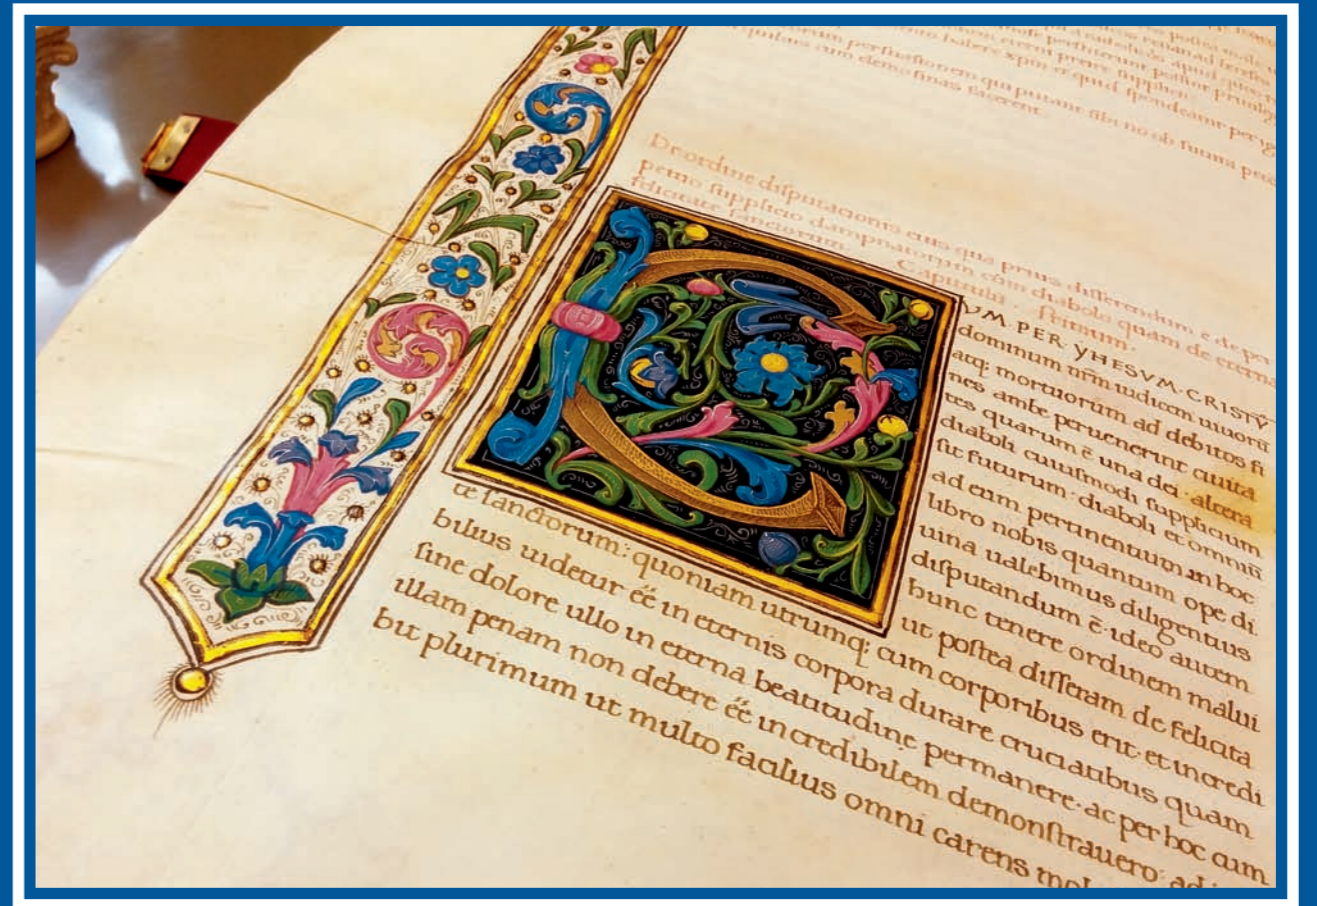 perſuaſionem qui putant ſibi nō ob futura
cum elemoſinas facerent
De ordine diſputacionis eius qua prius diſſerendum ē de per
petuo ſupplicio dampnatorum cum diabolo quam de eterna
felicitate ſanctorum Capitulum
Primum.
CVM · PER YHESVM · CRISTV̄
dominum nr̄m iudicem uiuorū
atq; mortuorum ad debitos fi
nes ambe peruenerint ciuita
tes quarum ē una dei · altera
diaboli cuiuſmodi ſupplicium
ſit futurum · diaboli et omniū
ad eum pertinentium in hoc
libro nobis quantum ope di
uina ualebimus diligentius
diſputandum ē · ideo autem
hunc tenere ordinem malui
ut poſtea diſſeram de felicita
te ſanctorum: quoniam utrumq; cum corporibus erit · et incredi
bilius uidetur ēē in eternis corpora durare cruciatibus quam
ſine dolore ullo in eterna beatitudine permanere · ac per hoc cum
illam penam non debere ēē incredibilem demonſtrauero · ad
bit plurimum ut multo facilius omni carens mol